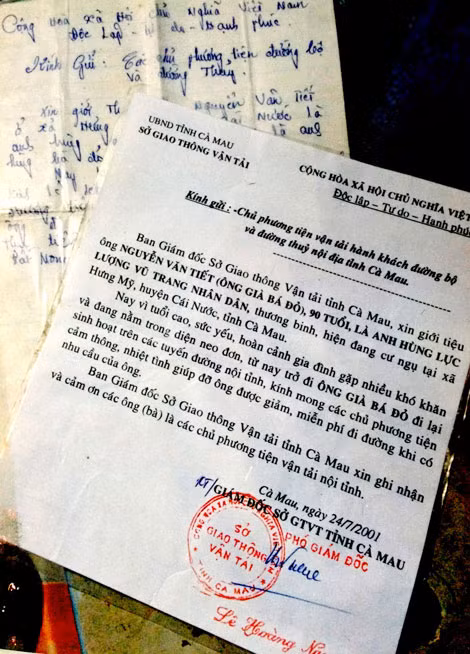 Cộng hòa xã Hội Chủ Nghĩa Việt Nam
Độc Lập - tự do - Hạnh phúc
Kính Gửi: Các chủ phương tiện đường bộ
Và đường Thủy.
Xin giới Th Nguyễn Văn Tiết
ở xã Hưng Nước là
anh hùng là anh
hùng bá đỏ
Nay
UBND TỈNH CÀ MAU
SỞ GIAO THÔNG VẬN TẢI
CỘNG HÒA XÃ HỘI CHỦ NGHĨA VIỆT
Độc lập – Tự do – Hạnh phúc
Kính gửi : -Chủ phương tiện vận tải hành khách đường bộ
và đường thuỷ nội địa tỉnh Cà Mau.
Ban Giám đốc Sở Giao thông Vận tải tỉnh Cà Mau, xin giới thiệu
ông NGUYỄN VĂN TIẾT (ÔNG GIÀ BÁ ĐỎ), 90 TUỔI, LÀ ANH HÙNG LỰC
LƯỢNG VŨ TRANG NHÂN DÂN, thương binh, hiện đang cư ngụ tại xã
Hưng Mỹ, huyện Cái Nước, tỉnh Cà Mau.
Nay vì tuổi cao, sức yếu, hoàn cảnh gia đình gặp nhiều khó khăn
và đang nằm trong diện neo đơn, từ nay trở đi ÔNG GIÀ BÁ ĐỎ đi lại
sinh hoạt trên các tuyến đường nội tỉnh, kính mong các chủ phương tiện
cảm thông, nhiệt tình giúp đỡ ông được giảm, miễn phí đi đường khi có
nhu cầu của ông.
Ban Giám đốc Sở Giao thông Vận tải tỉnh Cà Mau xin ghi nhận
và cảm ơn các ông (bà) là các chủ phương tiện vận tải nội tỉnh.
Cà Mau, ngày 24/7/2001
KT/GIÁM ĐỐC SỞ GTVT TỈNH CÀ MAU
PHÓ GIÁM ĐỐC
SỞ
GIAO THÔNG
VẬN TẢI
TỈNH CÀ MAU
Lê Hoàng